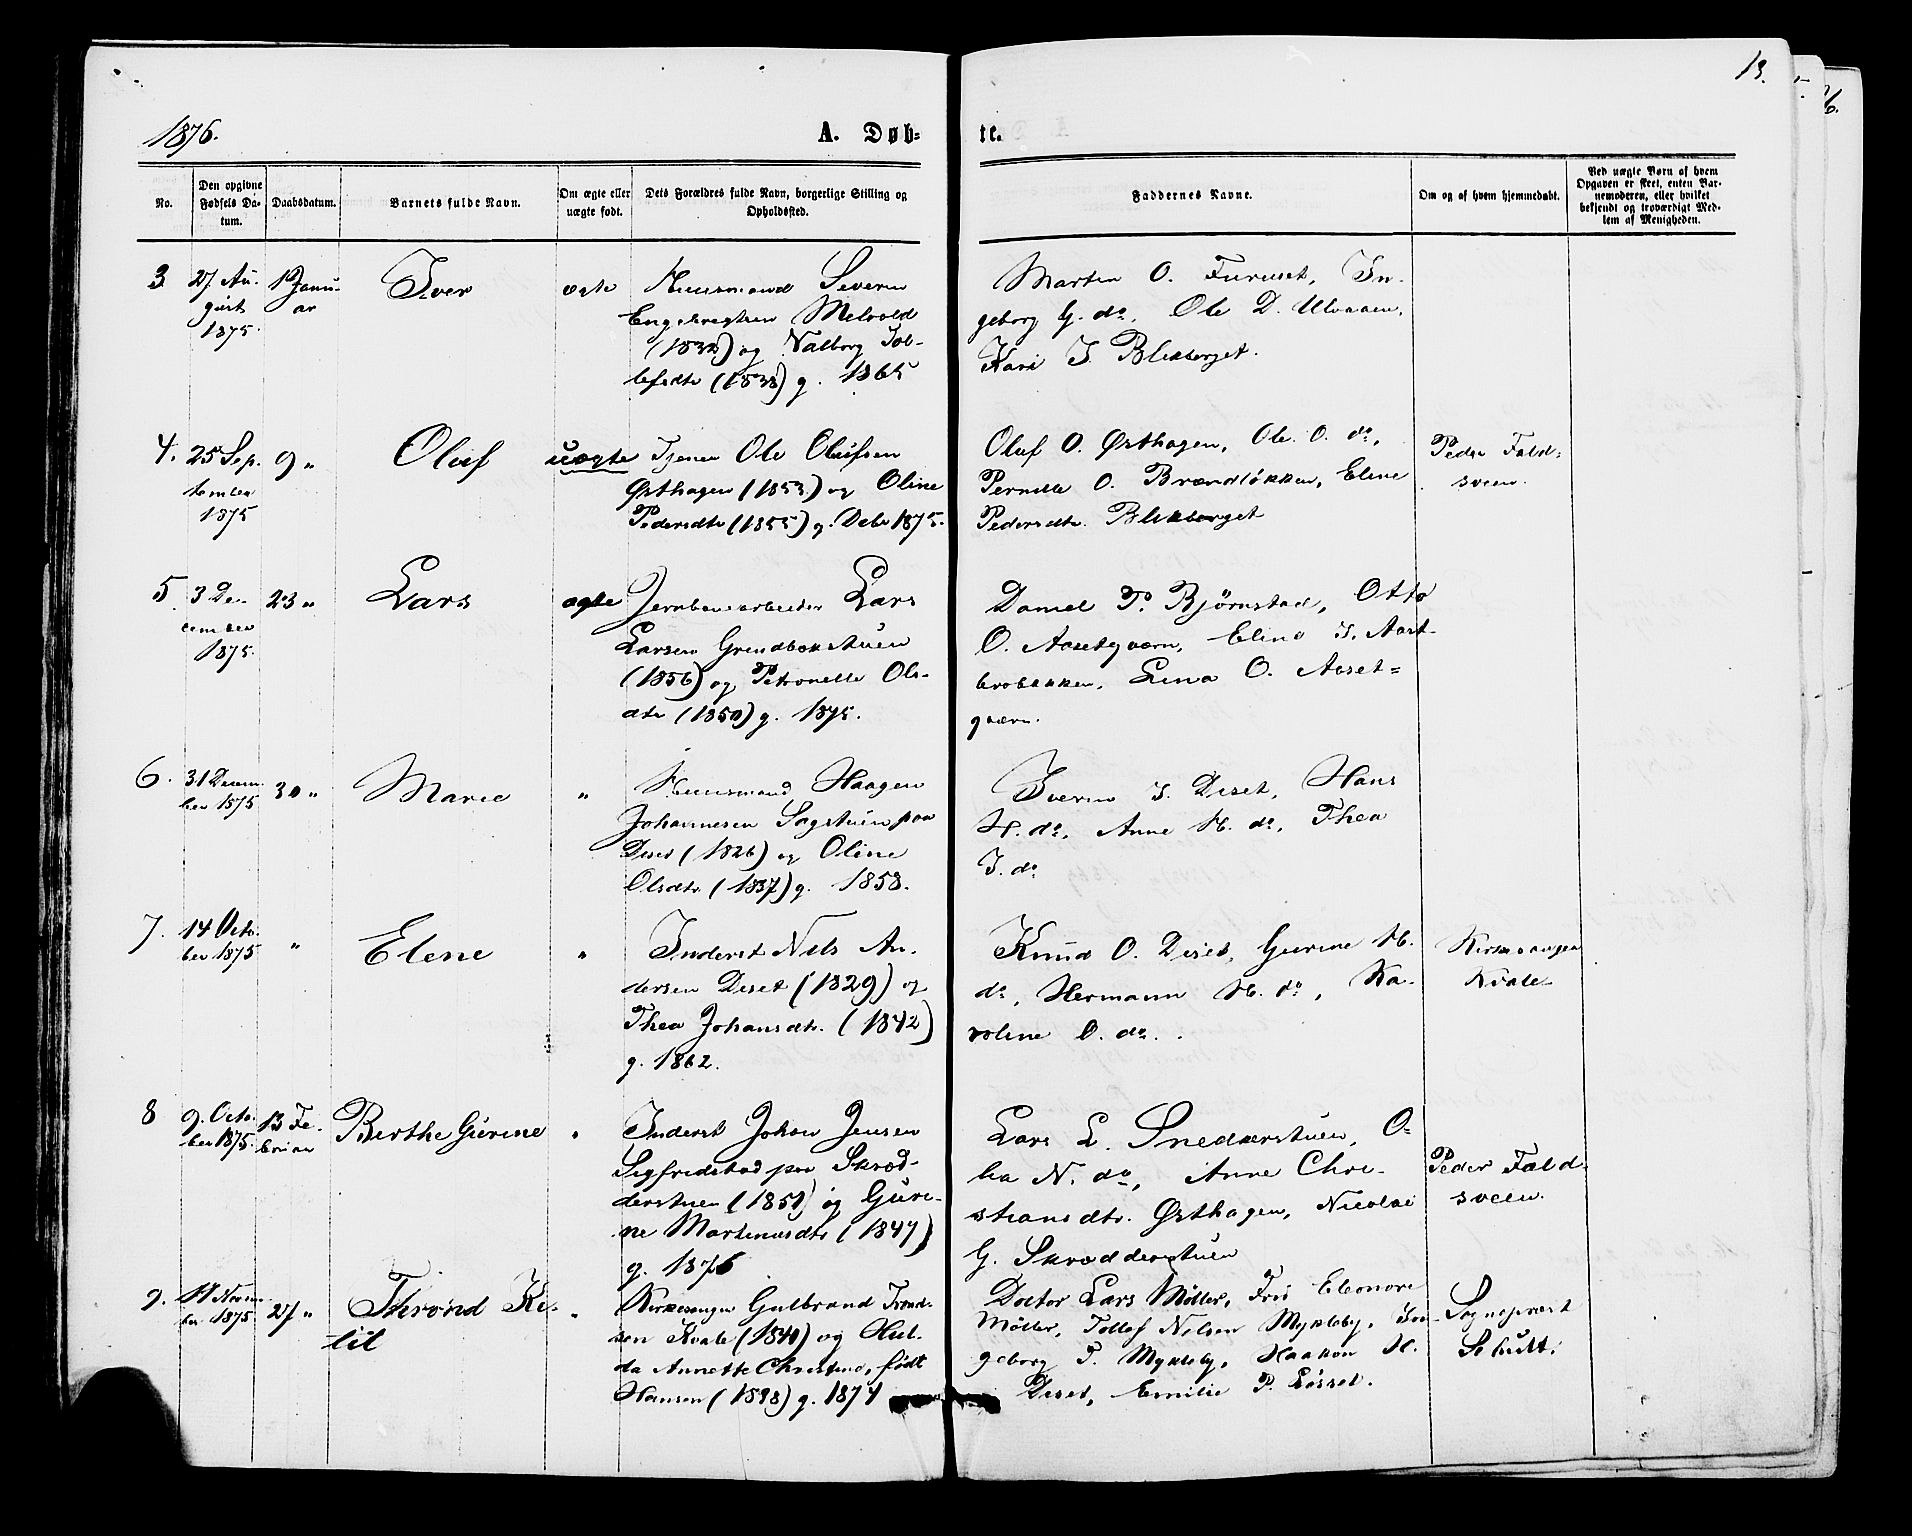 1876.
A. Døb-
te.
13.
No.
Den opgivne Fødsels Da-tum.
Daabsdatum.
Barnets fulde Navn.
Om ægte eller uægte født.
Dets Forældres fulde Navn, borgerlige Stilling og Opholdssted.
Faddernes Navne.
Om og af hvem hjemmedøbt.
Ved uægte Børn af hvem Opgaven er skeet, enten Bar-nemoderen, eller hvilket bekjendt og troværdigt Med-lem af Menigheden.
3
27 Au-
gust
1875.
Janu-
ar
Iver
ægte
Huusmand Severin
Engebregtsen Melvold
(1832) og Valborg
(1838) g. 1865
Marten O. Furuset, In-
geborg G. do, Ole D. Ulvaaen,
Kari I. Blikberget.
4.
25 Sep-
tember
1875
9 "
Oluf
uægte
Tjener Ole Olufsen
Østhagen (1853) og Oline
Pedersdtr (1855) g. Debr 1875.
Oluf O. Østhagen, Ole O. do,
Pernille O. Brændløkken, Eline
Pedersdtr. Blikberget
Peder Fald-
sveen.
5
3 De-
cember
1875.
23 "
Lars
ægte
Jernbanearbeider Lars
Larsen Grundbækstuen
(1856) og Petronelle Ols-
dtr (1850) g. 1875.
Daniel P. Bjørnstad, Otto
O. Aasetgaarn, Eline I. Aast-
brobakken, Lina O. Aaset-
gaarn.
6.
31 Decem-
ber 1875
30 "
Marie
"
Huusmand Haagen
Johannesen Sagstuen paa
Diset (1826) og Oline
Olsdtr (1837) g. 1858.
Iverin I. Diset, Hans
H. do, Anne H. do, Thea
I. do
7.
14 Octo-
ber 1875
"
Elene
"
Inderst Nils An-
dersen Diset (1829) og
Thea Johansdtr. (1842)
g. 1862.
Knud O. Diset, Gurine H.
do, Hermann H. do, Ka-
roline O. do.
Kirkesanger
Kvale
8
9. Octo-
ber 1875.
13 Fe-
bruar
Berthe Gurine
"
Inderst Johan Jensen
Sigfridstad paa Skræd-
derstuen (1850) og Guri-
ne Martinusdtr (1847)
g. 1876
Lars L. Snedkerstuen, O-
lea N. do, Anne Chri-
stiansdtr. Østhagen, Nicolai
G. Skrædderstuen
Peder Fald-
sveen.
9.
Novem-
ber 1875
27 "
Thrond Ke-
til
"
Kirkesanger Gulbrand Trond-
sen Kvale (1840) og Hul-
da Annette Christine, født
Hansen g. 1874
Doctor Lars Møller, Fru Eleonore
Møller, Tollef Nilsen Mykleby, In-
geborg T. Mykleby, Haakon H.
Diset, Emilie P. Løsset.
Sogneprest
Schult.